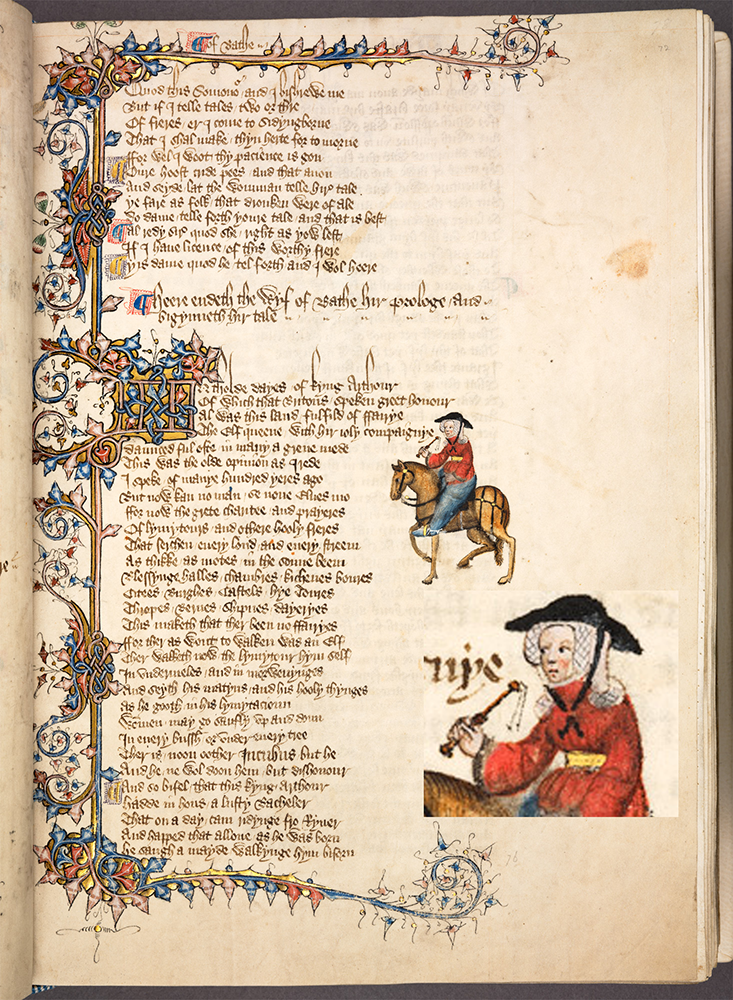 Of Bathe
72
Quod this Somonor and I bishrewe me
But if I telle tales two or thre
Of freres er I come to Sidyngborne
That I shal make thyn herte for to morne
ffor wel I woot thy pacience is gon
Oure hoost cride pees and that anon
And seyde lat the womman telle hire tale
ye fare as folk that dronken were of ale
Do dame telle forth youre tale and that is best
Al redy sir quod she right as yow lest
If I haue licence of this worthy frere
yis dame quod he tel forth and I wol heere
Heere endeth the Wyf of Bathe hir prologe and
bigynneth hir tale
In tholde dayes of kyng Arthour
Of which that Britons speken greet honour
Al was this land fulfild of ffairye
The Elf queene with hir ioly compaignye
daunced ful ofte in many a grene mede
This was the olde opinion as I rede
I speke of manye hundred yeres ago
But now kan no man se none Elues mo
ffor now the grete charitee and prayeres
Of lymytours and othere hooly freres
That serchen euery lond and euery streem
As thikke as motes in the sonne beem
Blessynge halles chambres kichenes boures
Citees Burghes Castels hye Toures
Thropes Bernes Shipnes dayeryes
This maketh that ther been no ffairyes
ffor ther as wont to walken was an Elf
Ther walketh now the lymytour hym self
In vndermeles and in morwenynges
And seyth his matyns and his hooly thynges
As he gooth in his lymytacioun
Wommen may go saufly vp and doun
In euery bussh or vnder euery tree
Ther is noon oother Incubus but he
And he ne wol doon hem but dishonour
And so bifel that this kyng Arthour
hadde in hous a lusty Bacheler
That on a day cam ridynge fro Ryuer
And happed that allone as he was born
he saugh a mayde walkynge hym biforn
nye
76